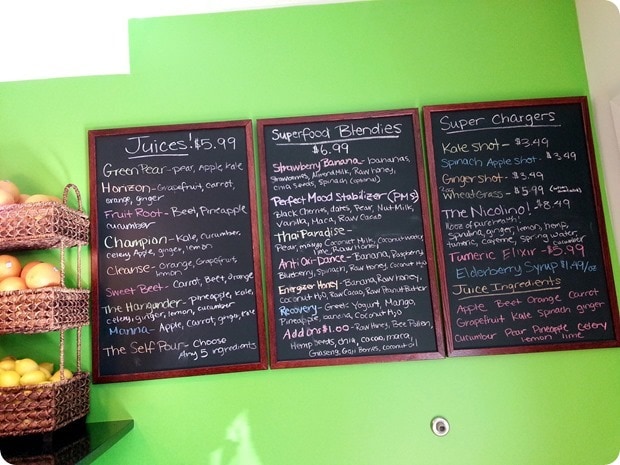 Juices! $5.99
Green Pear - pear, Apple, Kale
Horizon - Grapefruit, carrot,
orange, ginger
Fruit Root - Beet, Pineapple
cucumber
Champion - Kale, cucumber,
celery, Apple, ginger, lemon
Cleanse - Orange, Grapefruit,
Lemon
Sweet Beet - Carrot, Beet, Orange
The Harvander - Pineapple, Kale,
celery, ginger, lemon, cucumber
Manna - Apple, Carrot, ginger, Kale
The Self Pour - Choose
Any 5 ingredients
Superfood Blendies
$6.99
Strawberry Banana - bananas,
Strawberries, Almond Milk, Raw honey,
chia seeds, Spinach (optional)
Perfect Mood Stabilizer (PMS)
Black Cherries, dates, Pear, Nut Milk,
Vanilla, Maca, Raw Cacao
Thai Paradise -
Pear, mango, Coconut Milk, Coconut water,
lime, Raw Honey
Anti Oxi-Dance - Banana, Raspberry,
Blueberry, Spinach, Raw Honey, Coconut H2O
Energizer Honey - Banana, Raw Honey,
coconut H2O, Raw Cacao, Raw Peanut Butter
Recovery - Greek Yogurt, Mango,
Pineapple, banana, Coconut H2O
Add ons $1.00 - Raw Honey, Bee Pollen,
Hemp Seeds, chia, cacao, maca,
Ginseng, Goji Berries, coconut oil
Super Chargers
Kale Shot - $3.49
Spinach Apple Shot - $3.49
Ginger Shot - $3.49
2oz Wheat Grass - $5.99
The Nicolino! $8.49
16oz of pure health!
Spirulina, ginger, lemon, hemp,
tumeric, cayenne, Spring water,
cucumber
Tumeric Elixir - $5.99
Elderberry Syrup $1.49/oz
Juice Ingredients
Apple Beet Orange Carrot
Grapefruit Kale Spinach ginger
Cucumber Pear Pineapple Celery
Lemon lime